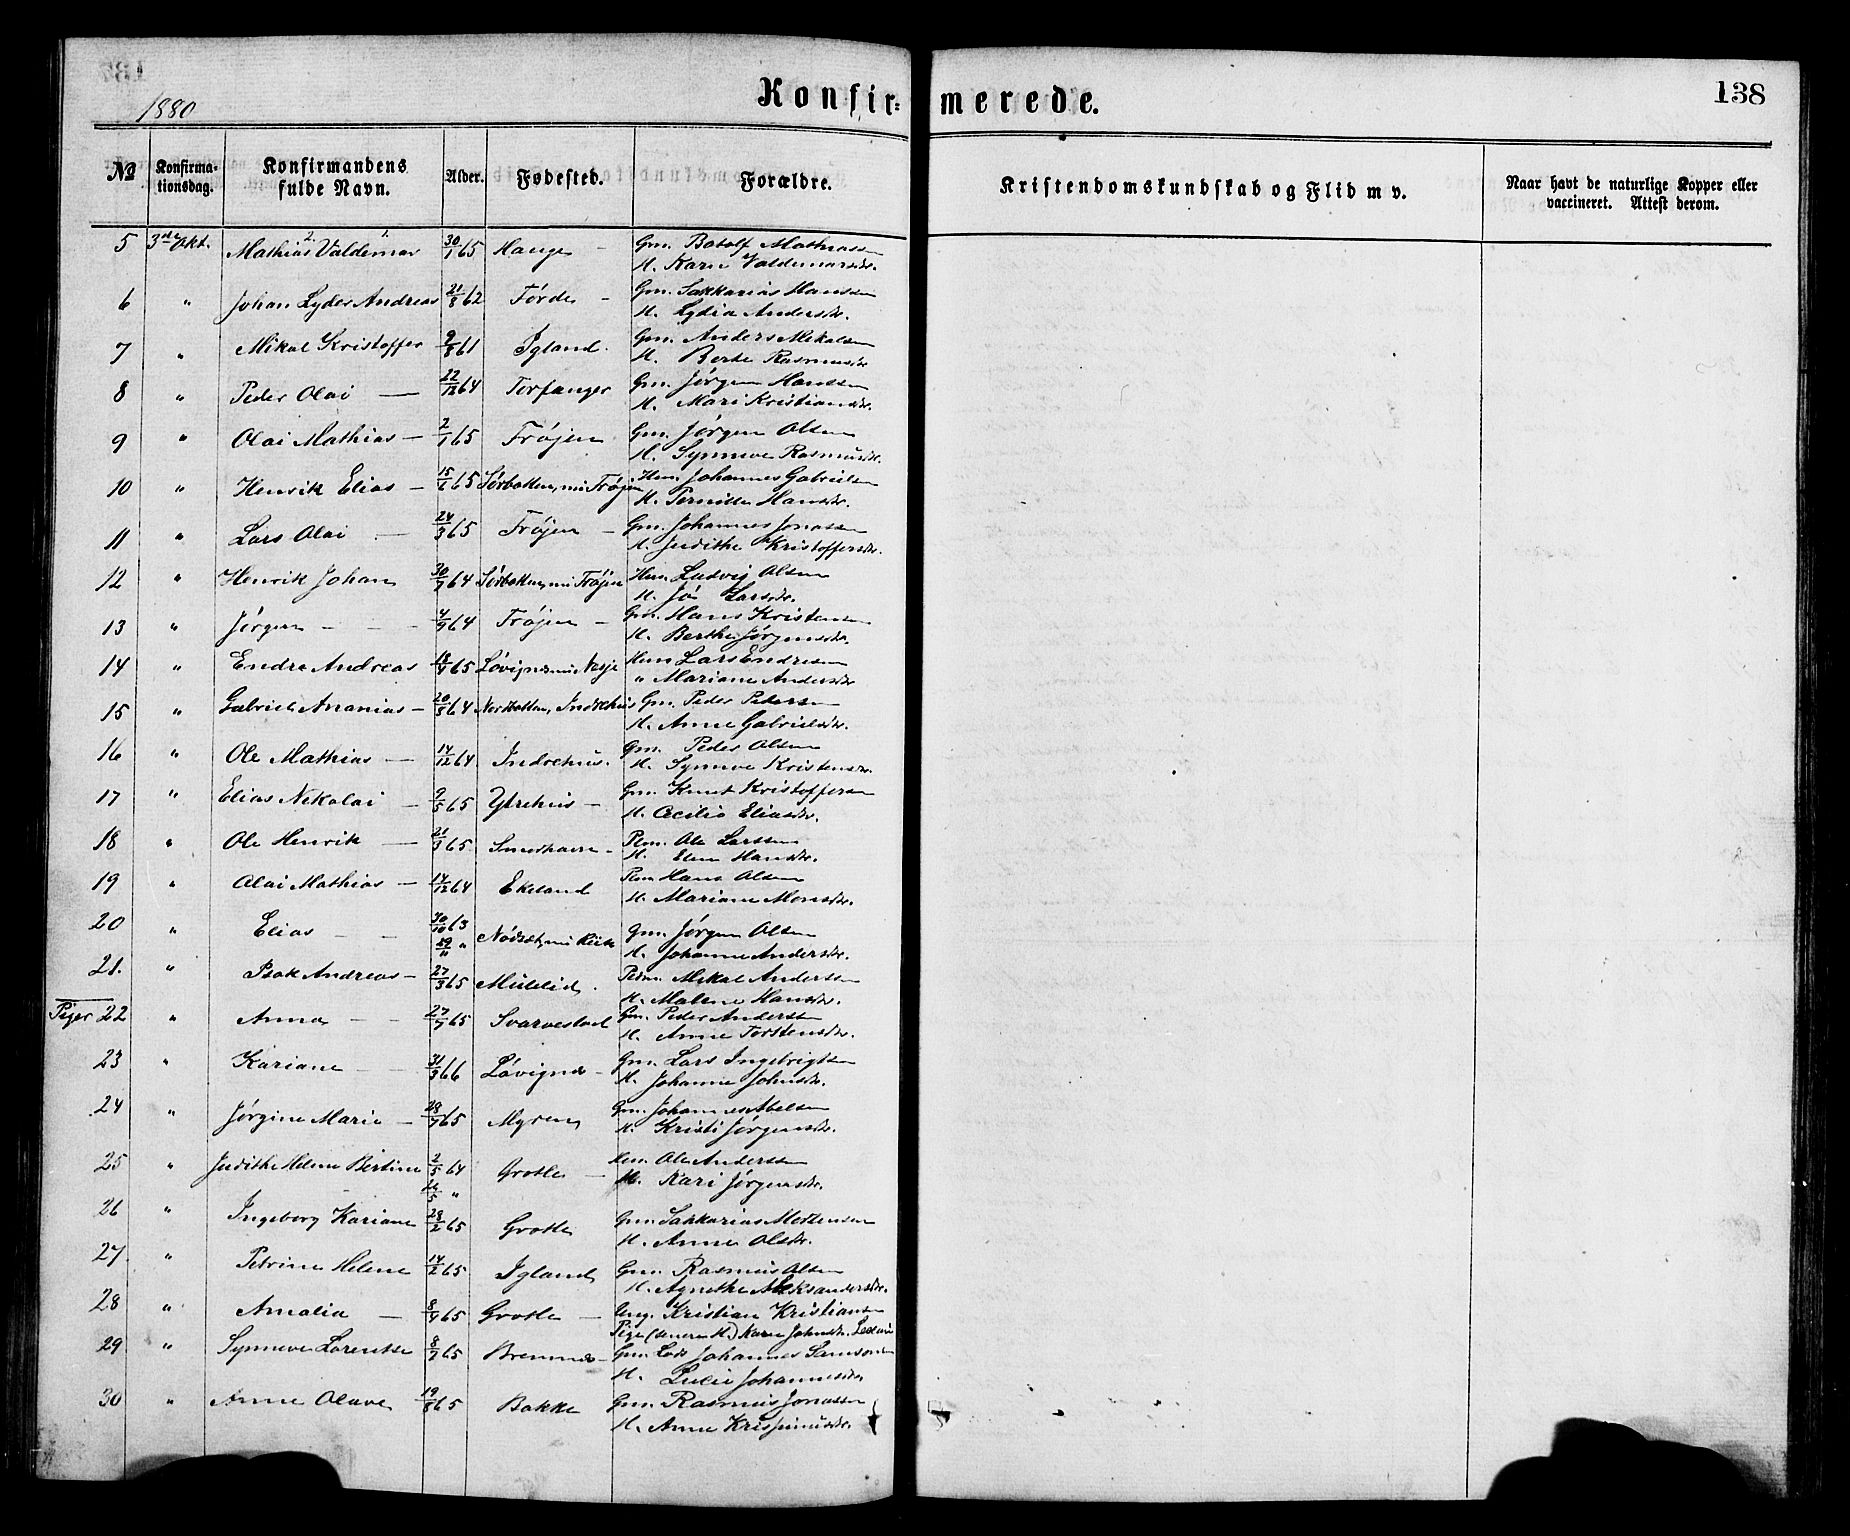 1880
Konfir- merede.
138
№ Konfirmationsdag. Konfirmandens fulde Navn. Alder. Fødested. Forældre. Kristendomskundskab og Flid m v. Naar havt de naturlige Kopper eller vaccineret. Attest derom.
5 3die Okt. Mathias Valdemar 30/1 65 Hauge – Gm. Botolf Mathiassen
H. Kari Valdemarsdr.
6 " Johan Lyder Andreas 21/8 62 Førde – Gm. Sakkarias Hanssen
H. Lydia Andersdr.
7 " Mikal Kristoffer 9/8 61 Igland. Gm. Anders Mikalsen
H. Berte Rasmusdr.
8 " Peder Olai — 22/12 64 Torfanger Gm. Jørgen Hanssen
H. Mari Kristiansdr.
9 " Olai Mathias — 2/1 65 Frøjen Gm. Jørgen Olsen
H. Synneve Rasmusdr.
10 " Henrik Elias – 15/6 65 Sørbotten, nu Frøjen Hm. Johannes Gabrielsen
H. Pernille Hansdr.
11 " Lars Olai — 24/3 65 Frøjen – Gm. Johannes Jonassen
H. Judithe Kristoffersdr.
12 " Henrik Johan 30/7 64 Sørbotten, nu Frøjen Hm. Ludvig Olsen
H. Larsdr.
13 " Jørgen – – – 4/9 64 Frøjen – Gm. Hans Kristensen
H. Berthe Jørgensdr.
14 " Endre Andreas 18/4 65 Løvignes nu Nesje Hm Lars Endresen
" Mariane Andersdr
15 " Gabriel Ananias – 20/3 64 Nordbotten, Indrehus Gm. Peder Pedersen
H. Anne Gabrielsdr.
16 " Ole Mathias — 14/12 64 Indrehus. Gm. Peder Olsen
H. Synneve Kristensdr.
17 " Elias Nikolai – 9/5 65 Ytrehus – Gm. Knut Kristoffersen
H. Cecilia Eliasdr.
18 " Ole Henrik — 21/3 65 Smørhavn – Plm. Ole Larssen
H. Elen Hansdr.
19 " Olai Mathias — 14/12 64 Ekeland Plm Hans Olsen
H. Mariane Monsdr.
20 " Elias – – 30/10 63 Nødset, nu Gm. Jørgen Olsen
H. Johanne Andersdr.
21. " Isak Andreas – 27/3 65 Myklelid. Plm. Mikal Anderssen
H. Malene Hansdr.
Piger 22 " Anna – – 27/7 65 Svarvestad Gm. Peder Anderssen
H. Anne Torstensdr.
23 " Kariane — 31/3 66 Løvignes – Gm. Lars Ingebrigtsen
H. Johanne Johnsdr.
24 " Jørgine Marie – 28/7 65 Myren Gm. Johannes Abelsen
H. Kristi Jørgensdr.
25 " Judithe Helene Bertine 2/5 64 Grotle — Hm. Ole Anderssen
H. Kari Jørgensdr.
26 " Ingeborg Kariane 28/2 65 Grotle Gm. Sakkarias Mortensen
H. Anne Olsdr.
27 " Petrine Helene 14/2 65 Igland Gm. Rasmus Olsen
H. Agnethe Aleksandersdr.
28 " Amalia — 8/4 65 Grotle – Ung. Kristian Kristiansen
Pige (senere H.) Kari Johnsdr.
29 " Synneve Lorentse 8/7 65 Bremnes – Gm. Lods Johannes Samsonsen
H. Lucie Johannesdr.
30 " Anne Olave 19/8 65 Bakke Gm. Rasmus Jonassen
H. Anne